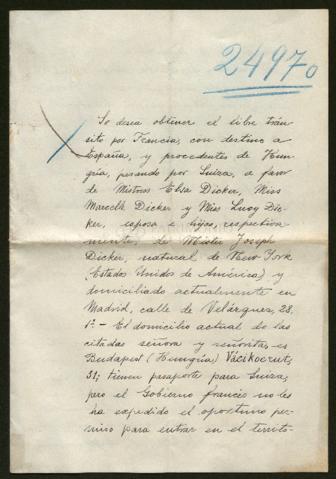 24970
Se desea obtener el libre trán-
sito por Francia, con destino a
España, y procedentes de Hun-
gría, pasando por Suiza, a favor
de Mistress Elsa Dicker, Miss
Marcella Dicker y Miss Lucy Dic-
ker, esposa e hijas, respectiva-
mente, de Mister Joseph
Dicker, natural de New York
(Estados Unidos de América) y
domiciliado actualmente en
Madrid, calle de Velázquez, 23,
1º - El domicilio actual de las
citadas señora y señoritas es
Budapest (Hungría)
31; tienen pasaporte para Suiza,
pero el Gobierno francés no les
ha expedido el oportuno per-
miso para entrar en el territo-